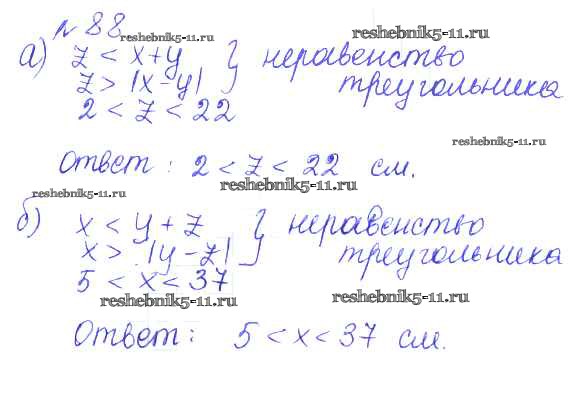 № 88
reshebnik5-11.ru
а) z < x+y } неравенство
z > |x-y| треугольника
2 < z < 22
reshebnik5-11.ru
Ответ: 2 < z < 22 см.
reshebnik5-11.ru
reshebnik5-11.ru
б) x < y + z } неравенство
x > |y - z| треугольника
5 < x < 37
reshebnik5-11.ru reshebnik5-11.ru
Ответ: 5 < x < 37 см.